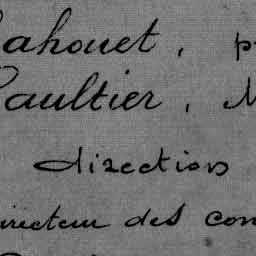 ahouet, p
Gaultier, M
direction
irecteur des con